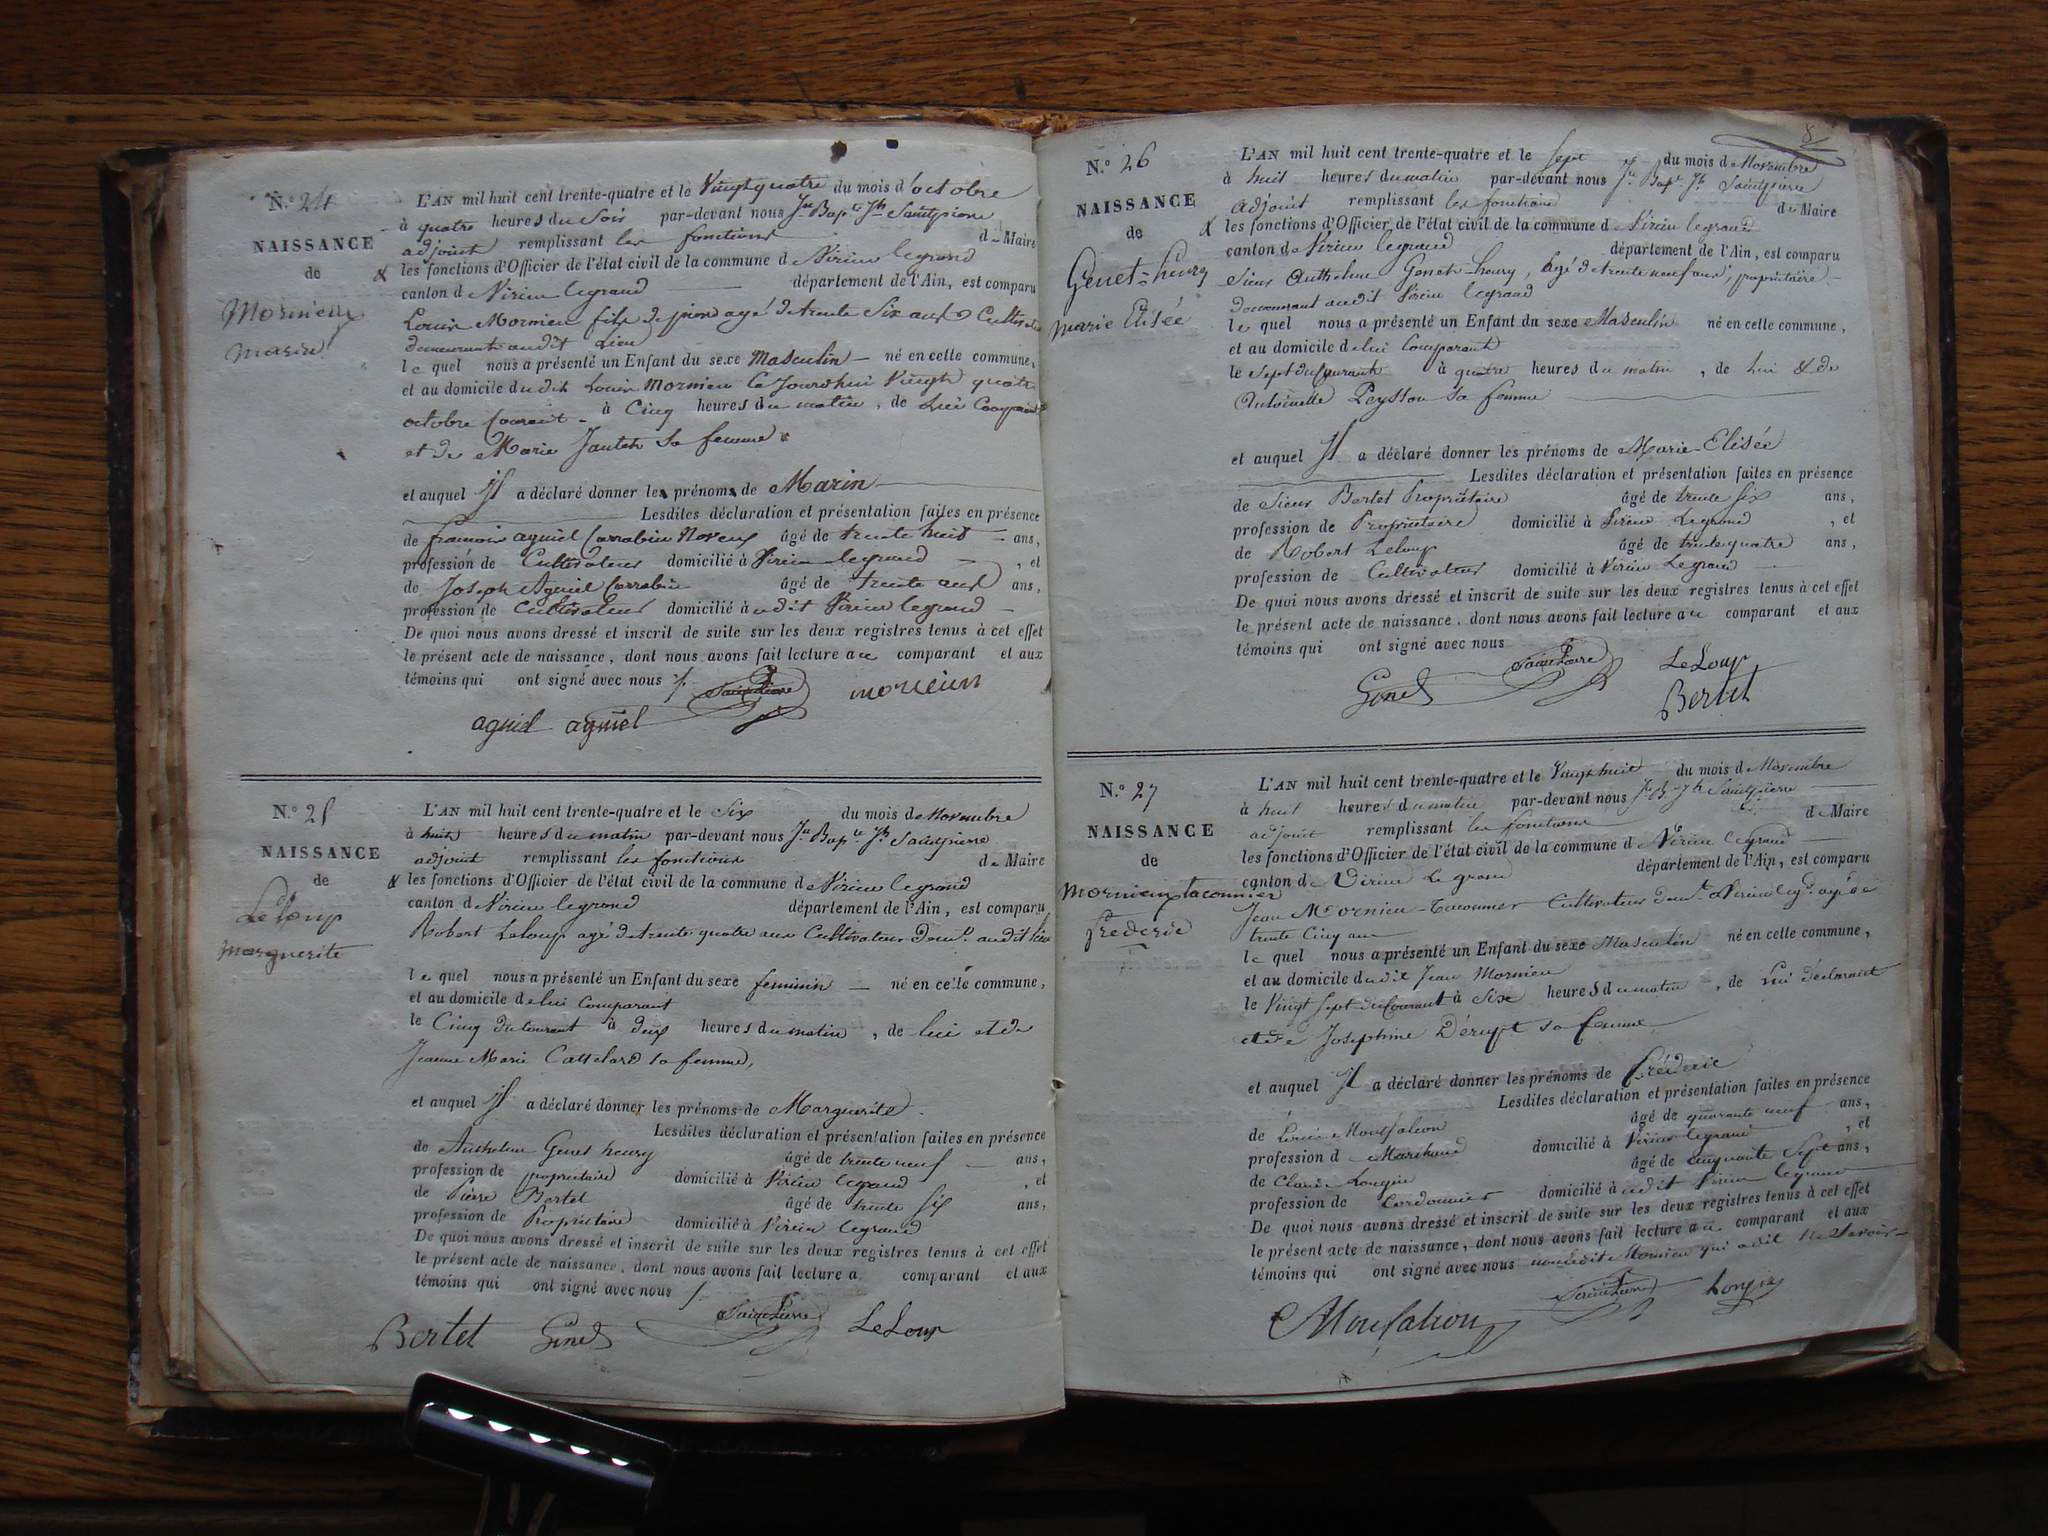 N.° 24
NAISSANCE
de
Mornieux
Marin
L'AN mil huit cent trente-quatre et le Vingt quatre du mois d'octobre
à quatre heures du Soir par-devant nous Jn Bapte Jh Saintpierre
adjoint remplissant les fonctions d Maire
les fonctions d'Officier de l'état civil de la commune d Virieu legrand
canton d Virieu legrand département de l'Ain, est comparu
Louis Mornieu fils de agé de trente Six ans Cultivateur
demeurant audit Lieu
le quel nous a présenté un Enfant du sexe Masculin né en cette commune,
et au domicile dudit Louis Mornieu Ce Jourdhui Vingt quatre
octobre Courant à Cinq heures du matin, de Lui Comparant
et de Marie Jantet sa femme
et auquel Jl a déclaré donner les prénoms de Marin
Lesdites déclaration et présentation faites en présence
de françois aguiel Carrabin Noveux âgé de trente huit ans,
profession de Cultivateur domicilié à Virieu legrand , et
de Joseph Aguiel Carrabin âgé de trente ans,
profession de Cultivateur domicilié à udit Virieu legrand
De quoi nous avons dressé et inscrit de suite sur les deux registres tenus à cet effet
le présent acte de naissance, dont nous avons fait lecture au comparant et aux
témoins qui ont signé avec nous
SaintPierre morieun
aguiel aguiel
N.° 25
NAISSANCE
de
Le loup
Marguerite
L'AN mil huit cent trente-quatre et le Six du mois de Novembre
à huit heures du matin par-devant nous Jn Bapte Jh Saintpierre
adjoint remplissant les fonctions de Maire
les fonctions d'Officier de l'état civil de la commune de Virieu legrand
canton de Virieu legrand département de l'Ain, est comparu
Robert Leloup agé de trente quatre ans Cultivateur Demt audit lieu
le quel nous a présenté un Enfant du sexe feminin né en cette commune,
et au domicile de lui Comparant
le Cinq du Courant à deux heures du matin, de lui et de
Jeanne Marie Cattelard sa femme,
et auquel Jl a déclaré donner les prénoms de Marguerite.
Lesdites déclaration et présentation faites en présence
de Anthelme Genet heury âgé de trente neuf ans,
profession de propriétaire domicilié à Virieu legrand , et
de Pierre Bertet âgé de trente Six ans,
profession de Propriétaire domicilié à Virieu legrand
De quoi nous avons dressé et inscrit de suite sur les deux registres tenus à cet effet
le présent acte de naissance, dont nous avons fait lecture a comparant et aux
témoins qui ont signé avec nous
Bertet Genet SaintPierre LeLoup
8
N.° 26
NAISSANCE
de
Genet-heury
Marie Elisée
L'AN mil huit cent trente-quatre et le Sept du mois de Novembre
à huit heures du matin par-devant nous Jn Bapte Jh Saintpierre
adjoint remplissant les fonctions de Maire
les fonctions d'Officier de l'état civil de la commune d Virieu legrand
canton de Virieu legrand département de l'Ain, est comparu
Sieur Anthelme Genet-heury, agé de trente neuf ans, propriétaire
demeurant audit Virieu legrand
le quel nous a présenté un Enfant du sexe Masculin né en cette commune,
et au domicile de lui Comparant
le Sept du Courant à quatre heures du matin, de lui & de
Antoinette Peysson sa femme
et auquel Jl a déclaré donner les prénoms de Marie-Elisée
Lesdites déclaration et présentation faites en présence
de Sieur Bertet Propriétaire âgé de trente six ans,
profession de Propriétaire domicilié à Virieu Legrand , et
de Robert Leloup âgé de trente quatre ans,
profession de Cultivateur domicilié à Virieu Legrand
De quoi nous avons dressé et inscrit de suite sur les deux registres tenus à cet effet
le présent acte de naissance, dont nous avons fait lecture au comparant et aux
témoins qui ont signé avec nous
Genet SaintPierre LeLoup
Bertet
N.° 27
NAISSANCE
de
Mornieux taconnier
frederic
L'AN mil huit cent trente-quatre et le Vingt huit du mois de Novembre
à huit heures du matin par-devant nous Jn B. Jh Saintpierre
adjoint remplissant les fonctions de Maire
les fonctions d'Officier de l'état civil de la commune d Virieu legrand
canton de Virieu Le grand département de l'Ain, est comparu
Jean Mornieu-Taconnier Cultivateur demt Virieu legd agé de
trente Cinq ans
le quel nous a présenté un Enfant du sexe Masculin né en cette commune,
et au domicile dudit Jean Mornieu
le Vingt Sept du Courant à Six heures du matin, de lui déclarant
et de Josephine Dérupt sa femme
et auquel Jl a déclaré donner les prénoms de frédéric
Lesdites déclaration et présentation faites en présence
de Louis Monfalcon âgé de quarante neuf ans,
profession d Marchand domicilié à Virieu legrand , et
de Claude Longin âgé de cinquante Sept ans,
profession de Cordonnier domicilié à udit Virieu legrand
De quoi nous avons dressé et inscrit de suite sur les deux registres tenus à cet effet
le présent acte de naissance, dont nous avons fait lecture au comparant et aux
témoins qui ont signé avec nous non ledit Mornieu qui a dit ne Savoir
Monfalcon SaintPierre Longin